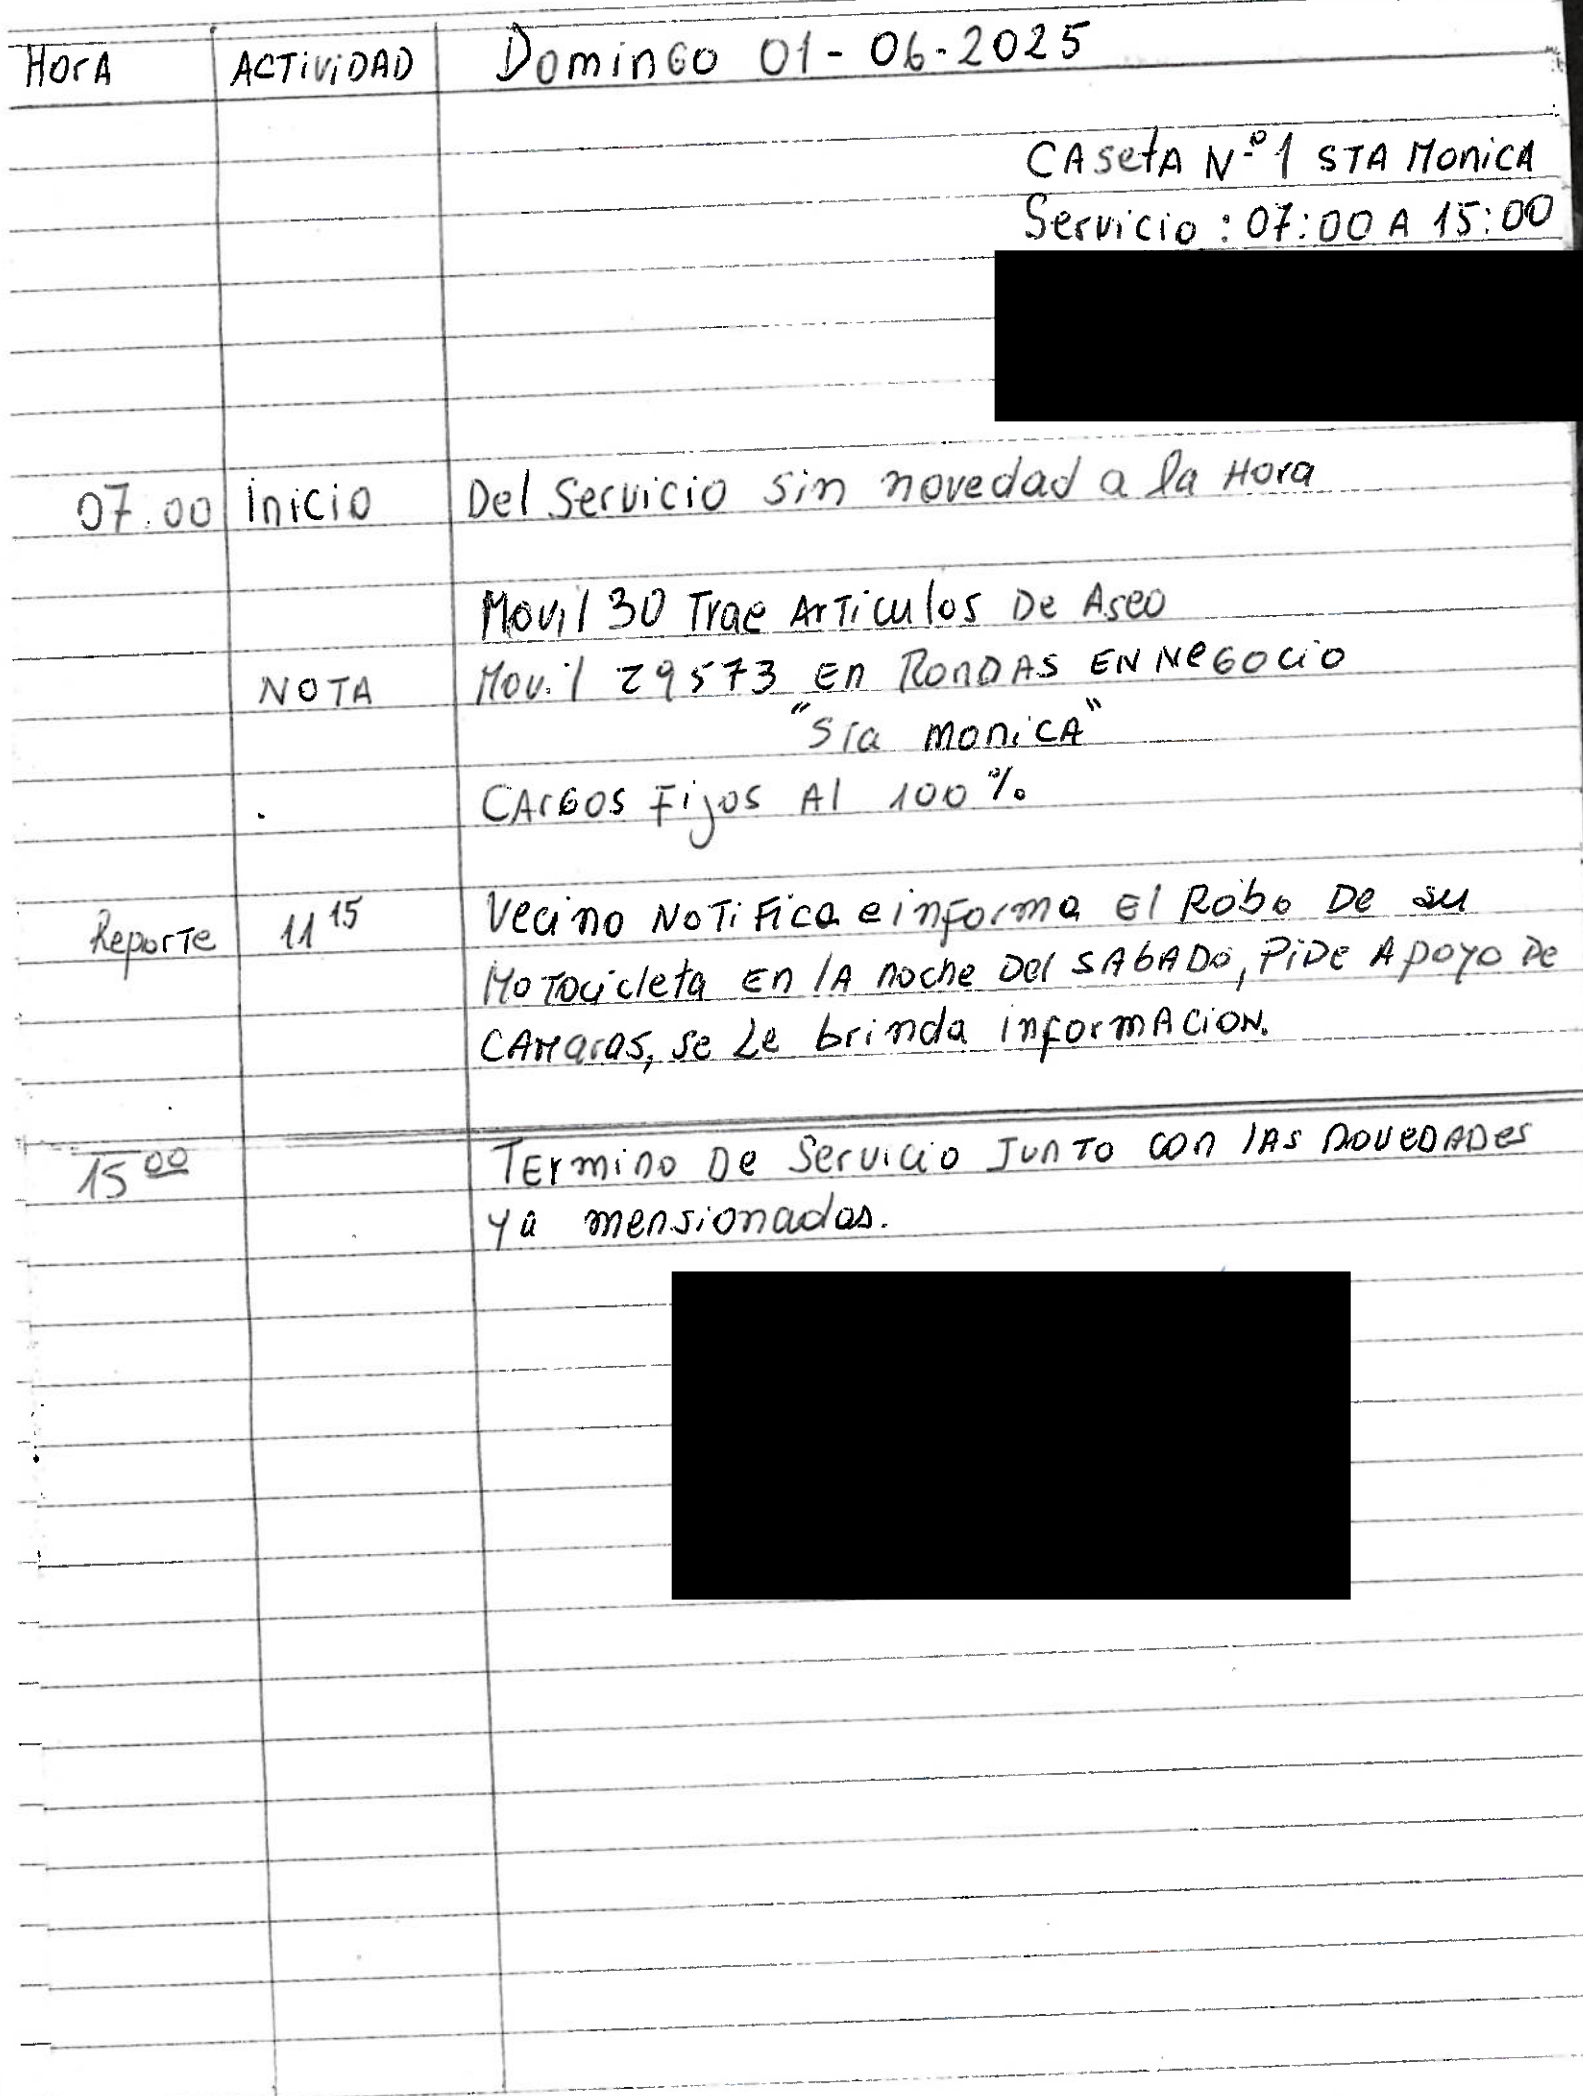 Hora ACTIVIDAD Domingo 01-06-2025
Caseta N.º 1 STA Monica
Servicio: 07:00 A 15:00
07.00 inicio Del Servicio sin novedad a la Hora
Movil 30 Trae Articulos De Aseo
NOTA Movil 29573 En Rondas En Negocio
"Sta Monica"
Cargos Fijos Al 100%
Reporte 11 15 Vecino Notifica e informa El Robo De su
Motocicleta En lA noche Del SAbADo, PiDe Apoyo De
CAMaras, se Le brinda informAcion.
15 00 Termino De Servicio Junto con lAs novedADes
ya mensionadas.